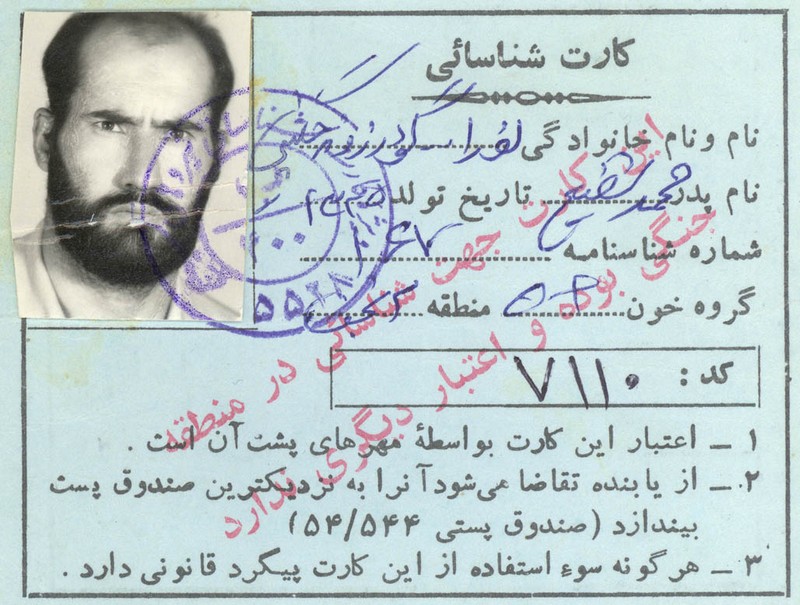 کارت شناسائی
نام و نام خانوادگی
نام پدر محمد شفیع تاریخ تولد
شماره شناسنامه ۶۷
گروه خون منطقه
کد : ۷۱۱۰
۱ ــ اعتبار این کارت بواسطهٔ مهرهای پشت آن است .
۲ ــ از یابنده تقاضا می‌شود آنرا به نزدیکترین صندوق پست
بیندازد (صندوق پستی ۵۴/۵۴۴)
۳ ــ هرگونه سوء استفاده از این کارت پیگرد قانونی دارد .
این کارت جهت شناسائی در منطقه
جنگی بوده و اعتبار دیگری ندارد